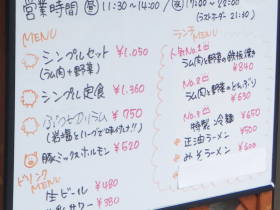 営業時間 昼 11:30~14:00 / 夜 17:00~22:00
(ラストオーダー 21:30)
MENU
シンプルセット ¥1.050
(ラム肉+野菜)
シンプル定食 ¥1.360
ラム ¥750
(岩塩とハーブで味付け!!)
豚ミックスホルモン ¥520
ドリンク
MENU
生ビール ¥480
サワー ¥380
ランチMENU
人気No.1
ラム肉と野菜の鉄板焼き
¥840
No.2
ラム肉と野菜のどんぶり
¥630
No.3
特製冷麺 ¥650
正油ラーメン ¥500
みそラーメン ¥600